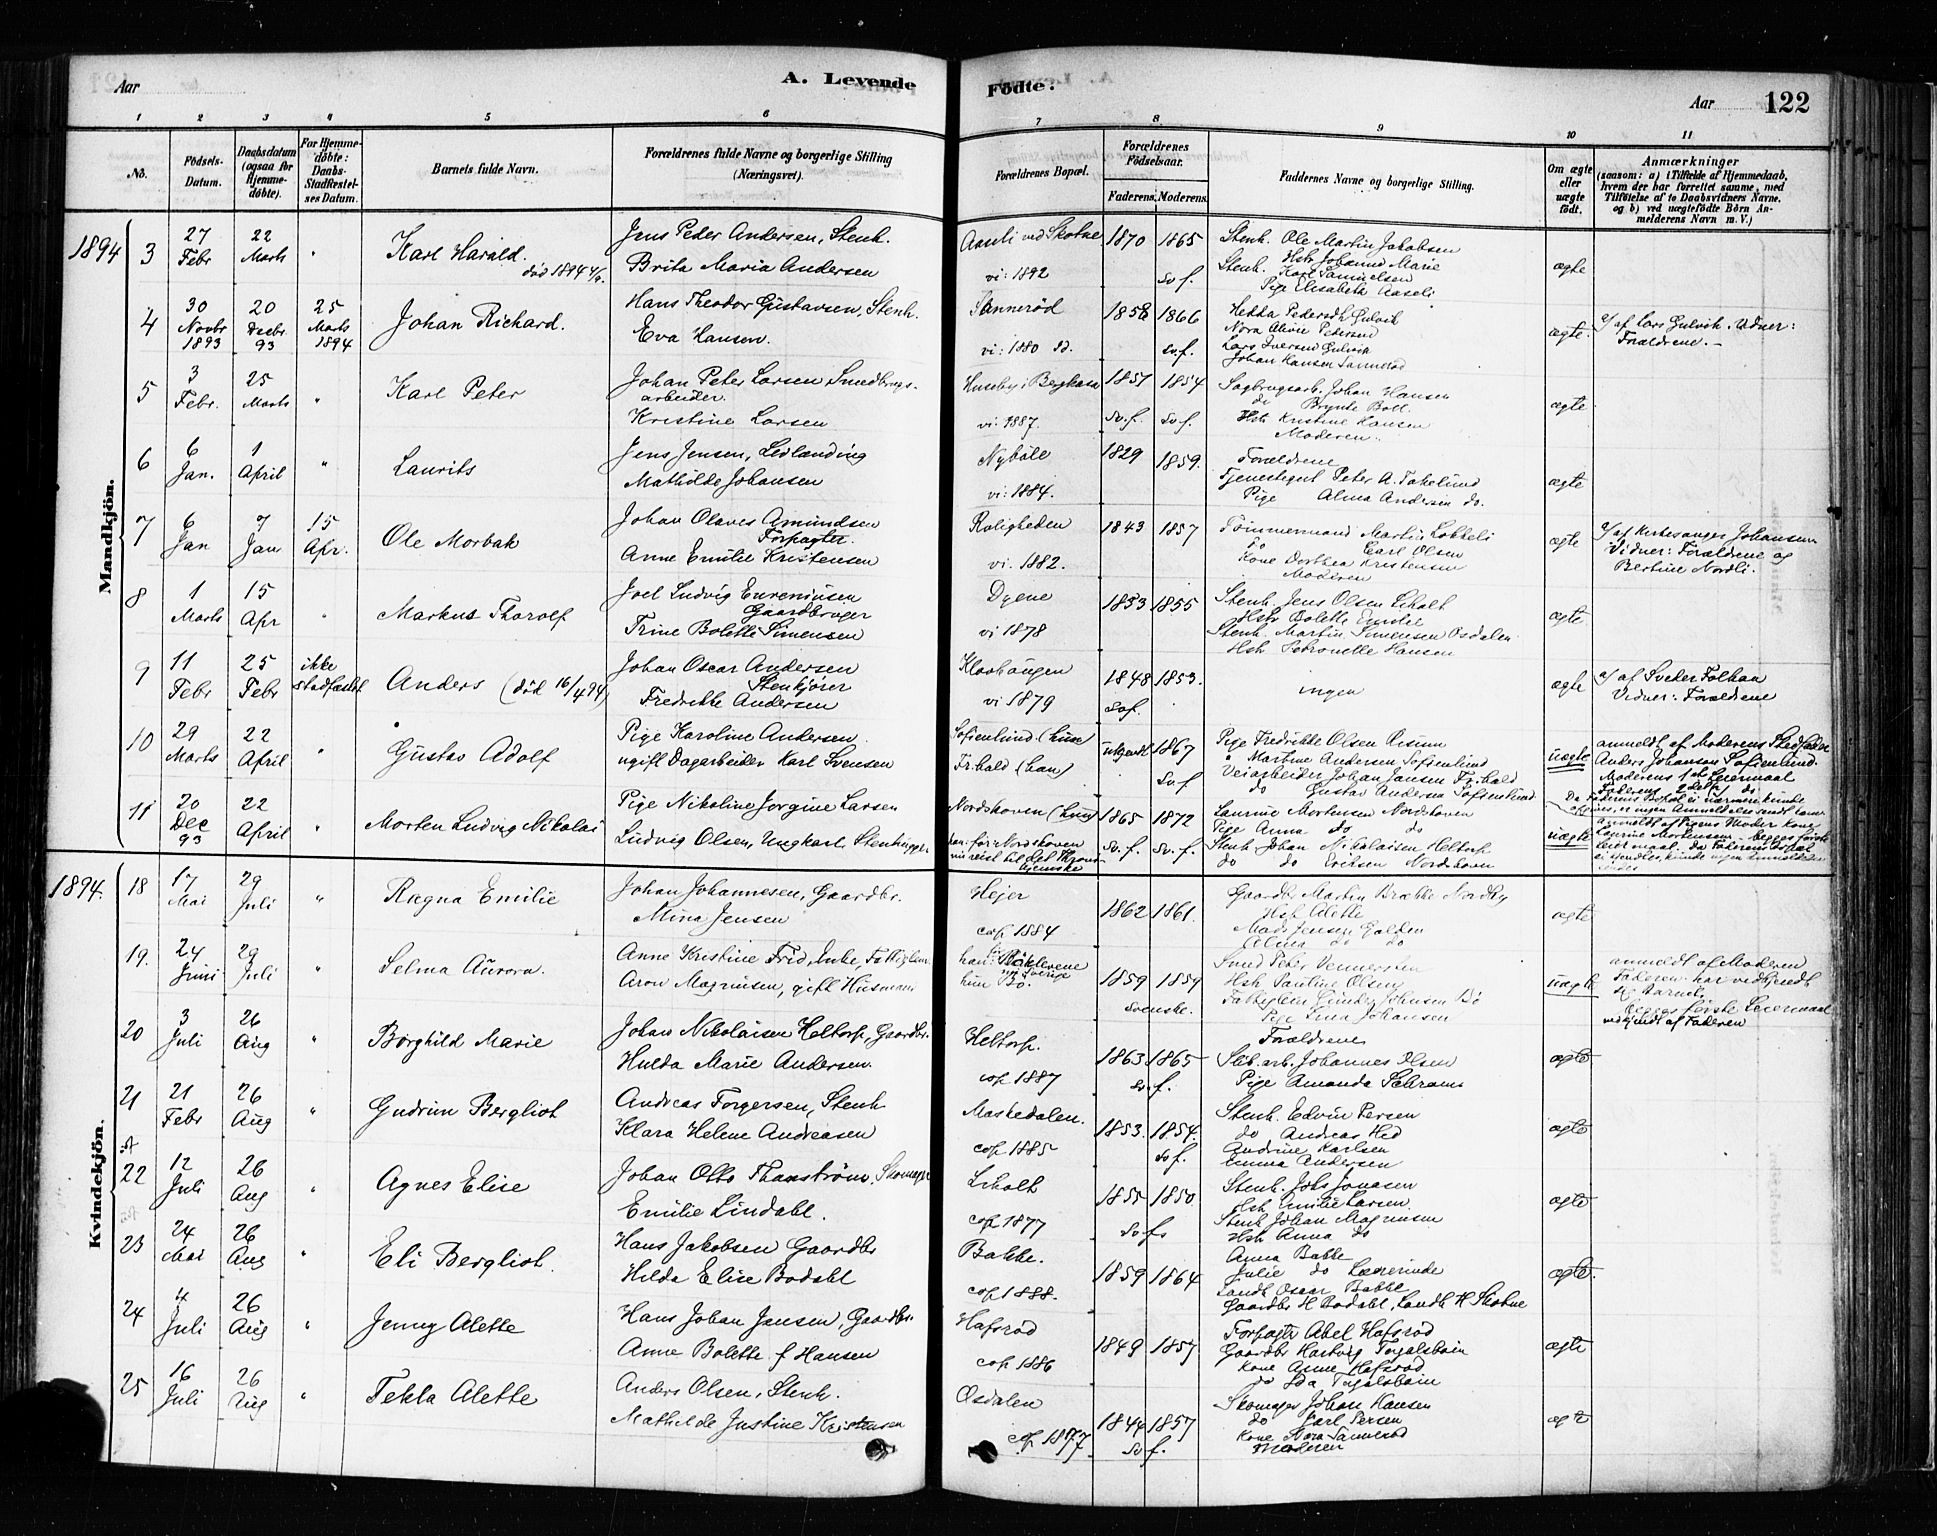 Aar
A. Levende
Fødte.
Aar
122
1 2 3 4 5 6 7 8 9 10 11
No.
Fødsels-Datum.
Daabsdatum (ogsaa for Hjemmedøbte).
For Hjemmedøbte: Daabs-Stadfæstelses Datum.
Barnets fulde Navn.
Forældrenes fulde Navne og borgerlige Stilling (Næringsvei).
Forældrenes Bopæl.
Forældrenes Fødselsaar.
Faderens. Moderens.
Faddernes Navne og borgerlige Stilling.
Om ægte eller uægte født.
Anmærkninger
(saasom: a) i Tilfælde af Hjemmedaab, hvem der har forrettet samme, med Tilføielse af to Daabsvidners Navne, og b) ved uægtefødte Børn Anmelderens Navn m. V.)
Mandkjøn.
1894 3 27 Febr 22 Marts " Karl Harald. død 1894
Jens Peder Andersen, Stenh.
Brita Maria Andersen
Aaseli ved Skotne vi: 1892 1870 1865 Sv f.
Stenh. Ole Martin Jakobsen
Hstr Johanne Marie
Stenh. Karl Samuelsen
Pige Elisabeth Aaseli
ægte
4 30 Novbr 1893 20 Decbr 93 25 Marts 1894 Johan Richard.
Hans Theodor Gustavsen, Stenh.
Eva Hansen.
Sannerød vi: 1880 1858 1866 Sv.f.
Hedda Pedersdt Gulvik
Nora Alvie Pedersen
Lars Iversen Gulvik
Johan Hansen Sannerød
ægte.
a/ af Lars Gulvik. Vidner: Forældrene. -
5 3 Febr. 25 Marts " Karl Peter
Johan Peter Larsen Smedbrugsarbeider.
Kristine Larsen
Huseby i Bergkasa vi: 1887. 1857 1854 Sv. f. Sv f.
Sagbrugsarb. Johan Hansen
do Brynte Boll.
Hstr Kristine Hansen
Moderen.
ægte
6 6 Jan. 1 April " Laurits
Jens Jensen, Ledlænding
Mathilde Johansen
Nybøle vi: 1884. 1829 1859.
Forældrene
Tjenestegut Peter A. Takelund
Pige Alma Andersen do.
ægte
7 6 Jan 7 Jan 15 Apr. Ole Morbak
Johan Olaves Amundsen Forpagter.
Anne Emilie Kristensen
Roligheden vi. 1882. 1843 1857
Tømmermand Martin Løkkeli
do Carl Olsen
Kone Dorthea Kristensen
Moderen
ægte
a/ af Kirkesanger Johansen
Vidner: Forældrene og
Bertine Nordli.
8 1 Marts 15 Apr " Markus Thorolf
Joel Ludvig Evreniusen Gaardbruger
Trine Bolette Simensen
Dyene vi 1878 1853 1855
Stenh. Jens Olsen Liholt
Hstr Bolette Emilie
Stenh. Martin Simensen Osdalen
Hstr Petronelle Hansen
ægte.
9 11 Febr 25 Febr ikke stadfæstet Anders (død 16/4 94)
Johan Oscar Andersen Stenkjører
Fredrikke Andersen
Klavhaugen vi 1879 1848 1853. Sv f.
ingen
ægte
a/ af Sveder Folkan
Vidner: Forældrene
10 29 Marts 22 April " Gustav Adolf
Pige Karoline Andersen
ugift Dagarbeider Karl Svensen
Sofienlund (hun) Fr.hald (han) ukjendt 1867 Sv.f
Pige Fredrikke Olsen Risum
" Martine Andersen Sofienlund
Veiarbeider Johan Jansen Fr.hald
do Gustav Andersen Sofienlund
uægte
anmeldt af Moderens Stedfader
Anders Johansen Sofienlund.
Moderens 1ste Leiermaal
Faderens 2det do
Da Faderens Bopæl ei nærmere kunde
opgives, er ingen Anmeldelse sendt ham
11 20 Dec 93 22 April " Morten Ludvig Nikolai
Pige Nikoline Jorgine Larsen
Ludvig Olsen, Ungkarl, Stenhugger
Nordshoven (hun)
han: før Nordshoven
nu reist til det Thrond-
hjemske
1865 1872 Sv. f. Sv. f.
Laurine Mortensen Nordshoven
Pige Anna do do
Stenh. Johan Nikolaisen Heltorp
do do Eriksen Nordshoven
uægte
anmeldt af Pigens Moder Kone
Laurine Mortensen. begges første
Leiermaal. da Faderens Bopæl
ei kjendtes, kunde ingen Anmeldelse
sendes
Kvindekjøn.
1894. 18 17 Mai 29 Juli " Ragna Emilie
Johan Johannesen, Gaardbr.
Mina Jensen
Hejer cop 1884 1862 1861.
Gaardbr Martin Brække Nordby
Hst Alette
Mads Jensen Galden
Alma do do
ægte
19. 24 Juni 29 Juli " Selma Aurora.
Anne Kristine Frid, Enke, Fattiglem
Aron Magnusen, gift Husmand
hun Bø. 1859 1859 Svenske.
Smed Peter Vennersten
Hstr Pauline Olsen
Fattiglem Johnsen Bø
Pige Lina Johansen
uægte
anmeldt af Moderen
Faderen har vedkjendt
sig Barnet.
Begges første Leiermaal
vedkjendt af Faderen
20 3 Juli 26 Aug " Borghild Marie
Johan Nikolaisen Heltorp, Gaardbr.
Hulda Marie Andersen.
Heltorp. cop 1887 1863 1865 Sv. f.
Forældrene
Slib.arb. Johannes Olsen
Pige Amanda Schram
ægte
21 21 Febr 26 Aug " Gudrun Bergliot
Andreas Torgersen, Stenh
Klara Helene Andreasen
Maskedalen. cop 1885 1853. 1854. Sv f.
Stenh. Edvin Persen
do Andreas Hed
Andrine Karlsen
Emma Andersen
ægte
22 12 Juli 26 Aug " Agnes Elise
Johan Otto Thanstrøm, Skomager
Emilie Lindahl.
Liholt cop 1877 1855 1850 Sv f.
Stenh. Johs Jonasen
Hst Emilie Larsen.
Stenh Johan Magnusen
Hst Anna do
ægte
23 24 Mai 26 Aug " Eli Bergliot.
Hans Jakobsen Gaardbr
Hilda Elise Bodahl
Bakke. cop 1888. 1859 1864
Anna Bakke
Julie do Lærerinde
Landh Oscar Bakke
Gaardbr H Bodahl, Landh H Skotne
ægte.
24 4 Juli 26 Aug " Jenny Alette
Hans Johan Jensen, Gaardbr.
Anne Bolette f Hansen
Hafsrød cop 1886 1849 1857
Forpagter Abel Hafsrød
Gaardbr Hartvig Torgalsbøin
Kone Anne Hafsrød
do Ida Torgalsbøin
ægte
25 16 Juli 26 Aug " Tekla Alette
Anders Olsen, Stenh.
Mathilde Justine Kristensen
Osdalen cop 1877 1844 1857 Sv f.
Skomager Johan Hansen
do Karl Persen
Kone Nora Sannerød
Moderen
ægte